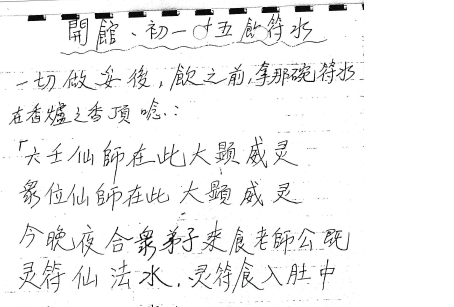 開館、初一十五飲符水
一切做妥後，飲之前，拿那碗符水
在香爐之香頂唸：
「六壬仙師在此大顯威灵
眾位仙師在此大顯威灵
今晚夜合眾弟子來食老師公既
灵符仙法水，灵符食入肚中